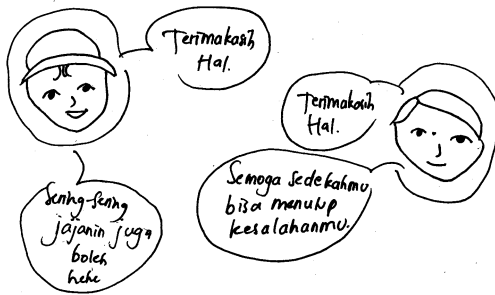 Terimakasih
Hal.
Sering-sering
jajanin juga
boleh
hehe
Terimakasih
Hal.
Semoga sedekahmu
bisa menutup
kesalahanmu.